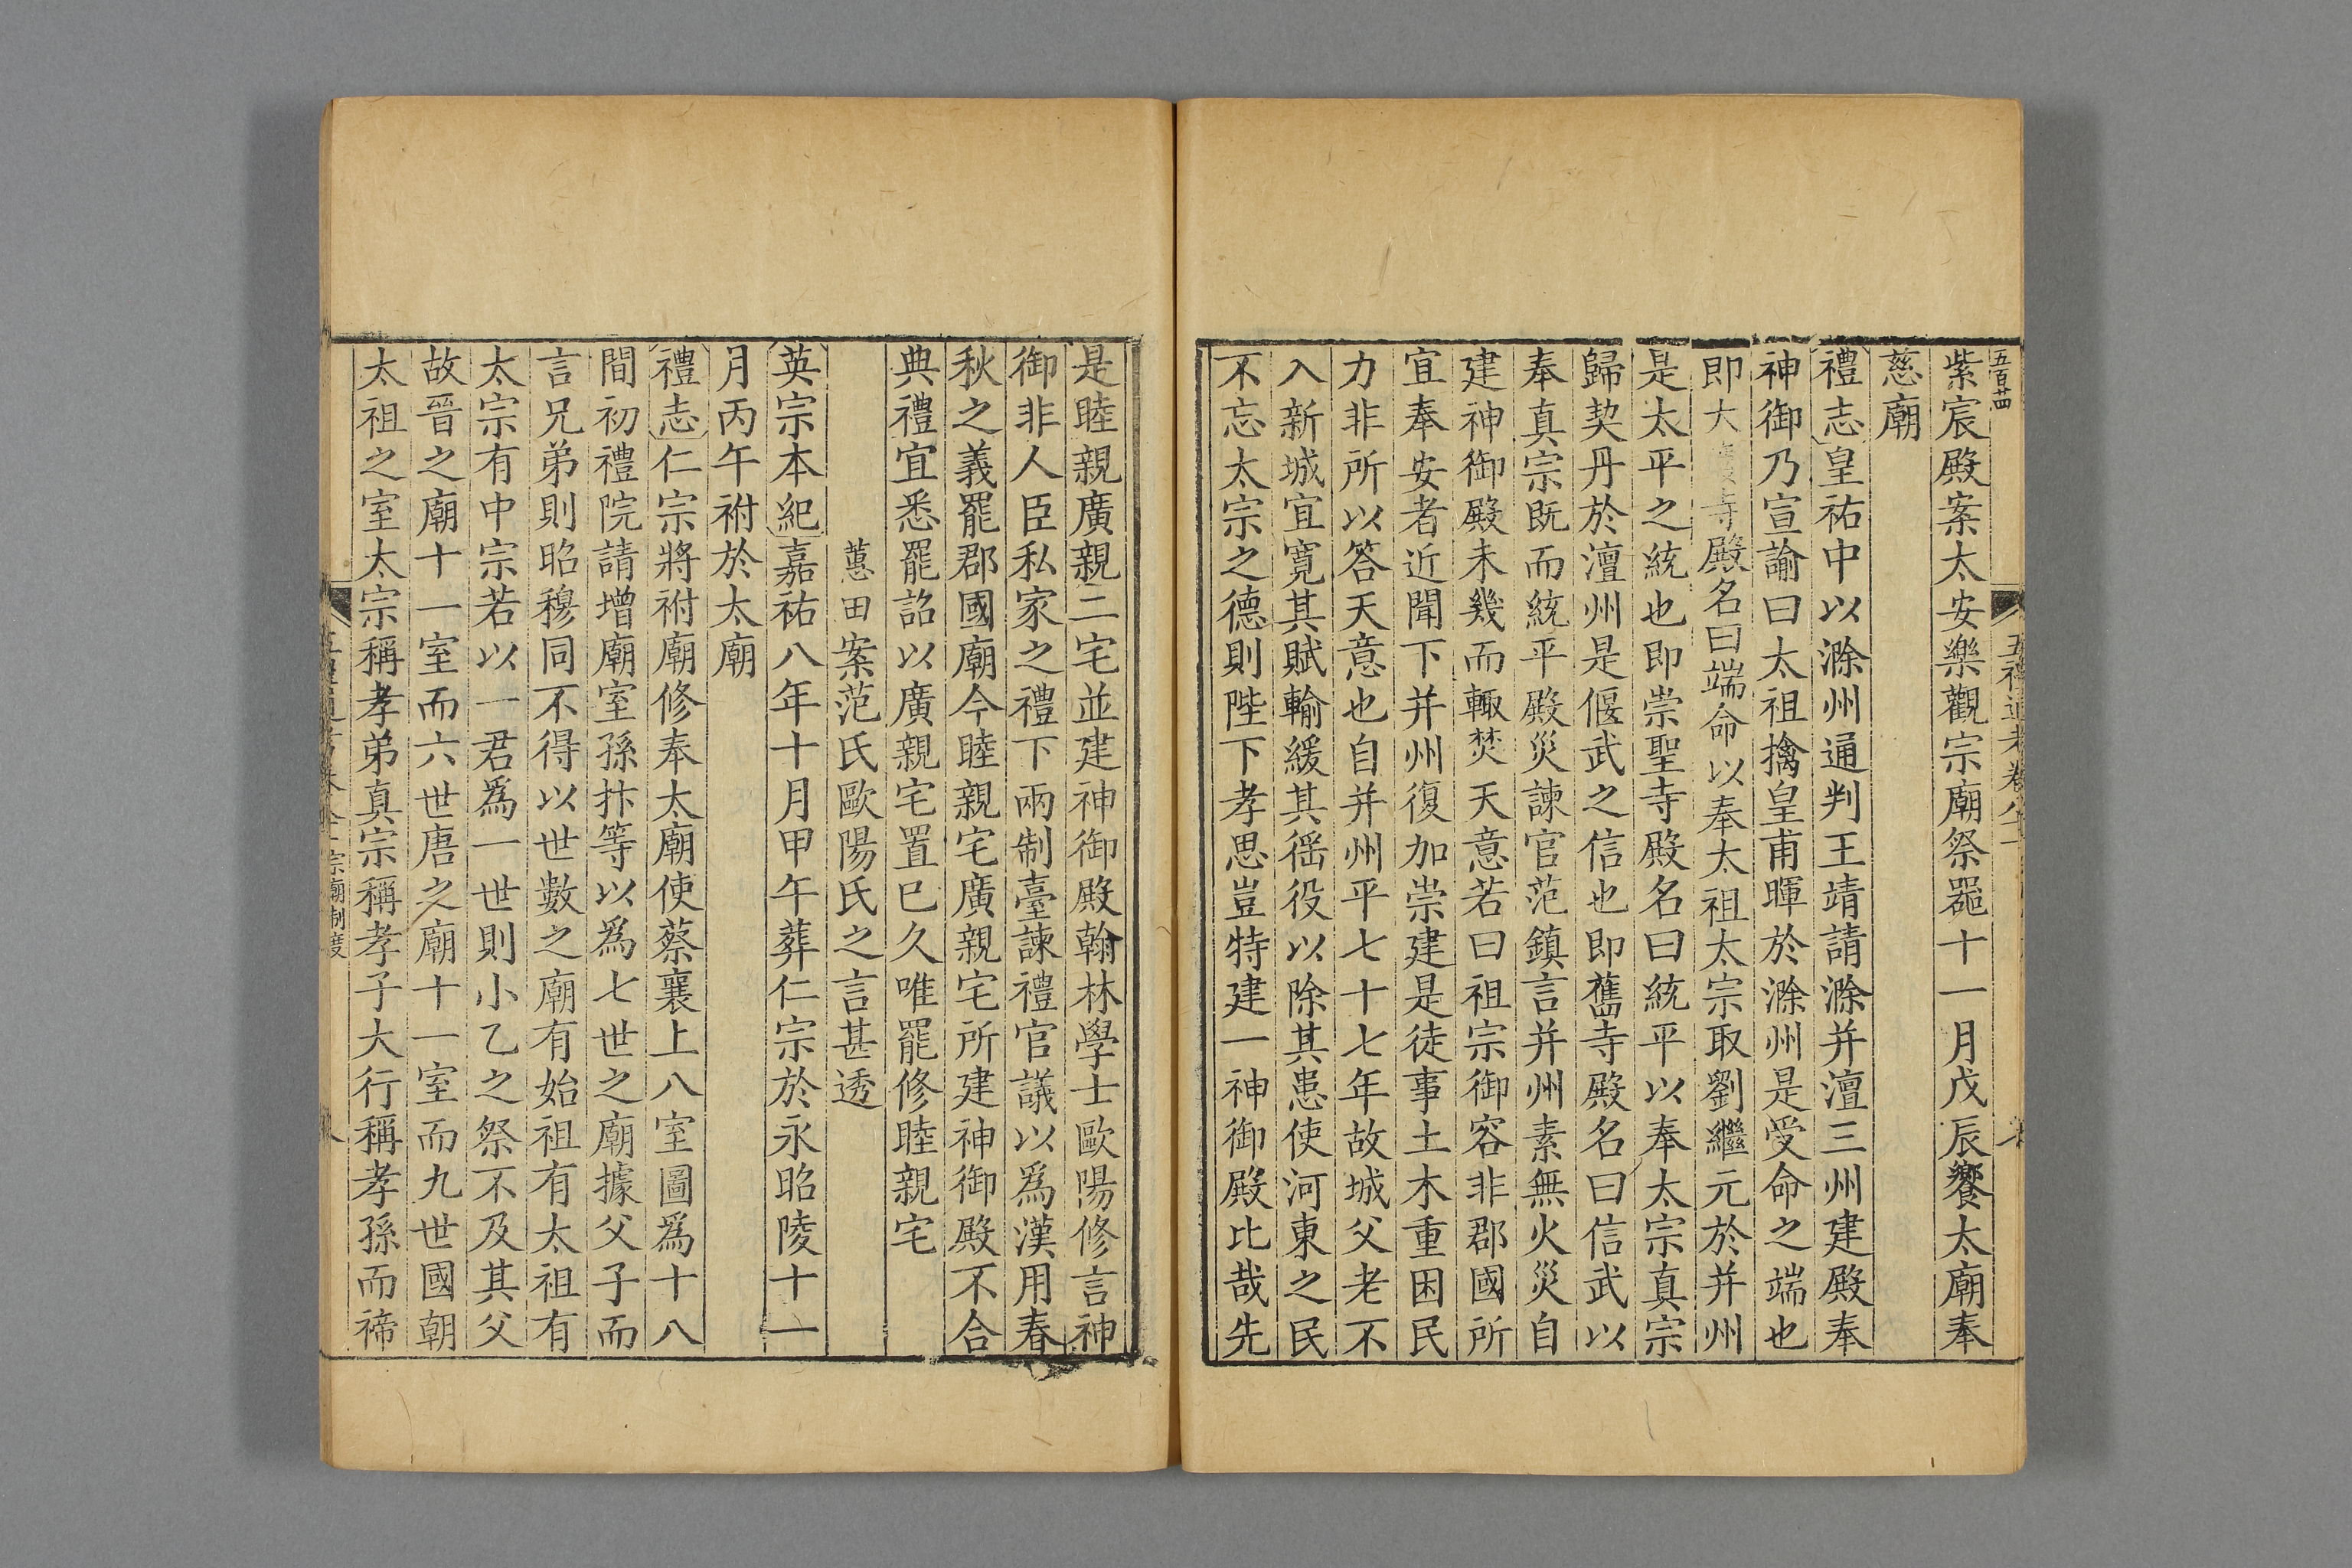 五百廿四
紫宸殿案太安樂觀宗廟祭器十一月戊辰饗太廟奉
慈廟
禮志皇祐中以滁州通判王靖請滁并澶三州建殿奉
神御乃宣諭曰太祖擒皇甫暉於滁州是受命之端也
即大寺殿名曰端命以奉太祖太宗取劉繼元於并州
是太平之統也即崇聖寺殿名曰統平以奉太宗真宗
歸契丹於澶州是偃武之信也即舊寺殿名曰信武以
奉真宗既而統平殿災諫官范鎮言并州素無火災自
建神御殿未幾而輙焚天意若曰祖宗御容非郡國所
宜奉安者近聞下并州復加崇建是徒事土木重困民
力非所以答天意也自并州平七十七年故城父老不
入新城宜寛其賦輸緩其徭役以除其患使河東之民
不忘太宗之德則陛下孝思豈特建一神御殿比哉先
是睦親廣親二宅並建神御殿翰林學士歐陽修言神
御非人臣私家之禮下兩制臺諫禮官議以為漢用春
秋之義罷郡國廟今睦親宅廣親宅所建神御殿不合
典禮宜悉罷詔以廣親宅置已久唯罷修睦親宅
蕙田案范氏歐陽氏之言甚透
英宗本紀嘉祐八年十月甲午葬仁宗於永昭陵十一
月丙午祔於太廟
禮志仁宗將祔廟修奉太廟使蔡襄上八室圖為十八
間初禮院請增廟室孫抃等以為七世之廟據父子而
言兄弟則昭穆同不得以世數之廟有始祖有太祖有
太宗有中宗若以一君為一世則小乙之祭不及其父
故晉之廟十一室而六世唐之廟十一室而九世國朝
太祖之室太宗稱孝弟真宗稱孝子大行稱孝孫而禘
宗廟制度